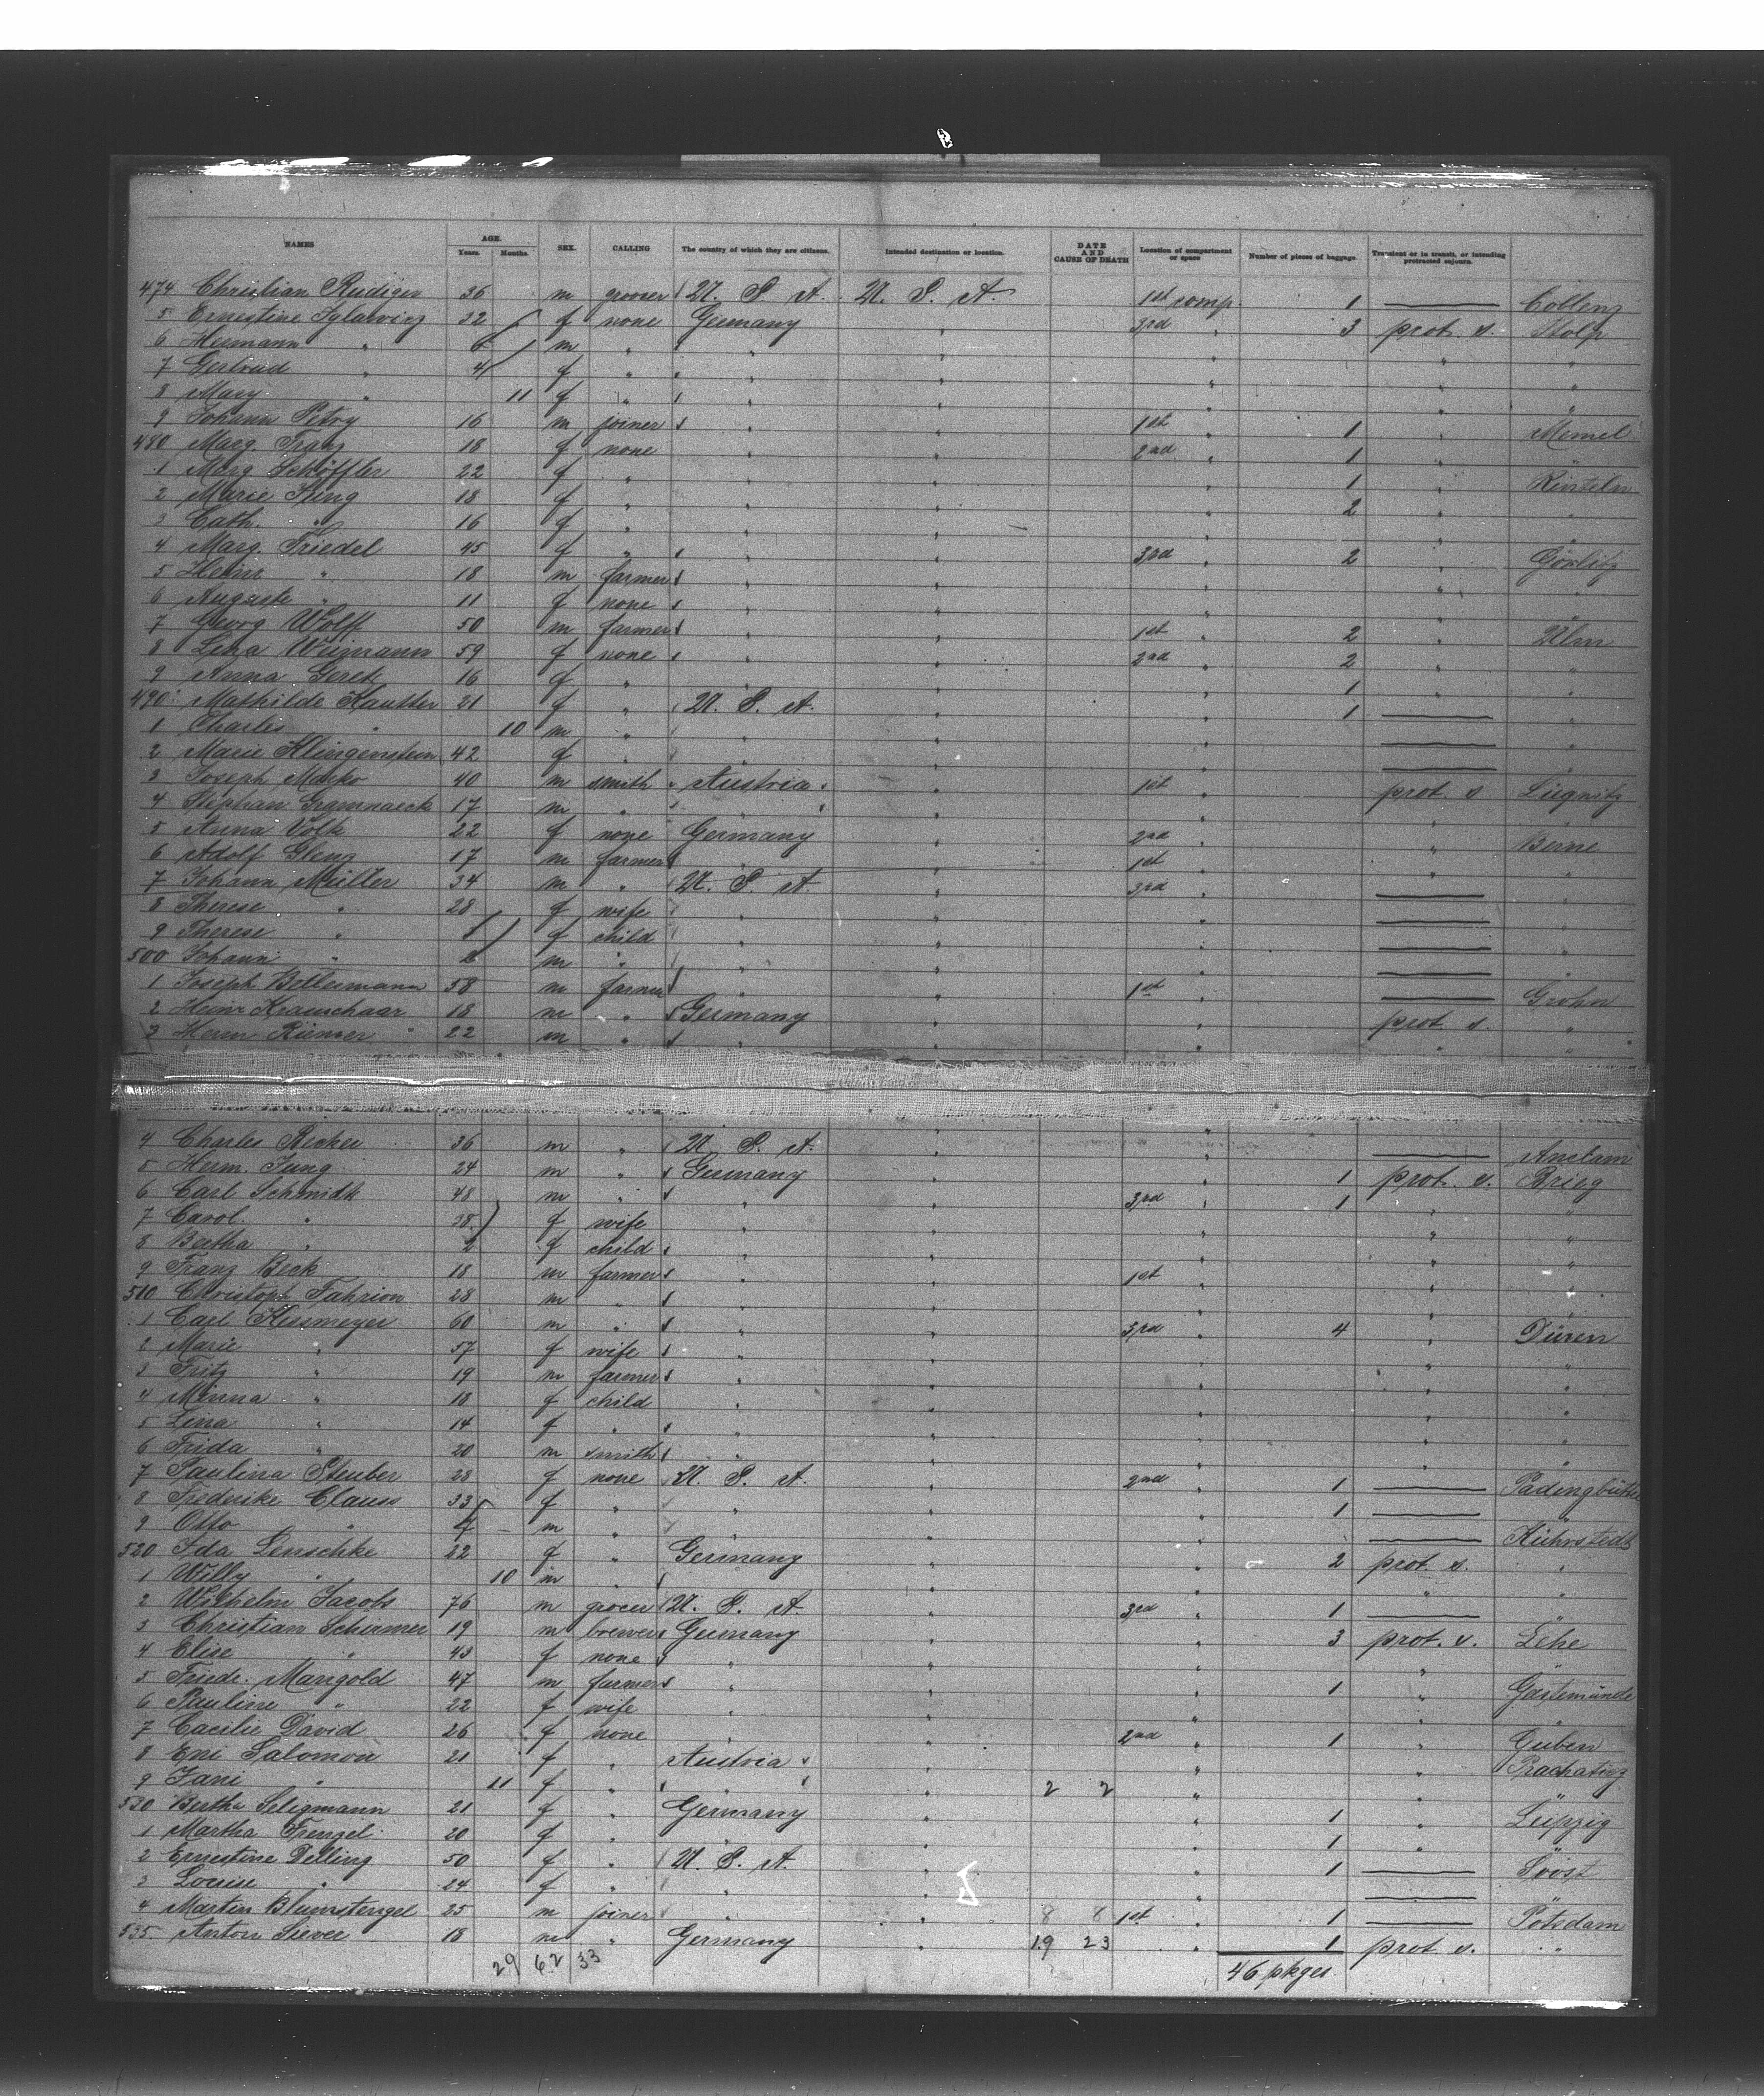 NAMES AGE. Years. Months. SEX. CALLING The country of which they are citizens. Intended destination or location. DATE AND CAUSE OF DEATH Location of compartment or space Number of pieces of baggage. Transient or in transit, or intending protracted sojourn.
474 Christian Rudiger 36 m grocer U. S. A. U. S. A. 1st comp. 1 Coblenz
5 Ernestine 32 f none Germany " 3rd " 3 prot. s. Stolp
6 Hermann " 6 m " " " " " "
7 Gertrud " 4 f " " " " " "
8 Mary " 11 f " " " " " "
9 Johann Petry 16 m joiner " " 1st " 1 " Memel
480 Marg. Franz 18 f none " " 2nd " 1 " "
1 Marg. Schöffler 22 f " " " " 1 " Rinteln
2 Marie King 18 f " " " " 2 " "
3 Cath. " 16 f " " " " " "
4 Marg. Friedel 45 f " " " 3rd " 2 " Görlitz
5 Heinr " 18 m farmer " " " " "
6 Auguste " 11 f none " " " " "
7 Georg Wolff 50 m farmer " " 1st " 2 " Ulm
8 Lena Weimann 59 f none " " 2nd " 2 " "
9 Anna Gerek 16 f " " " " 1 " "
490 Mathilde Kautter 21 f " U. S. A. " " 1 "
1 Charles " 10 m " " " " "
2 Marie Klingenstein 42 f " " " " "
3 Joseph Marko 40 m smith Austria " 1st " prot. s Liegnitz
4 Stephan 17 m " " " " " "
5 Anna Volk 22 f none Germany " 2nd " " Berne
6 Adolf Glenz 17 m farmer " " 1st " " "
7 Johann Müller 34 m " U. S. A. " 3rd " "
8 Therese " 28 f wife " " " "
9 Therese " f child " " " "
500 Johann " m " " " " "
1 Joseph Bellermann 58 m farmer " " 1st " Grohn
2 Heinr Krauschaar 18 m " Germany " " prot s. "
3 Herm Riemer 22 m " " " " " "
4 Charles Recker 36 m " U. S. A. " " Anclam
5 Herm. Jung 24 m " Germany " " 1 prot. s. Brieg
6 Carl Schmidt 48 m " " " 3rd " 1 " "
7 Carol. " 38 f wife " " " " "
8 Bertha " 2 f child " " " " "
9 Franz Beck 18 m farmer " " 1st " " "
510 Christoph Fahrion 28 m " " " " " "
1 Carl Kissmeyer 60 m " " " 3rd " 4 " Düren
2 Marie " 57 f wife " " " " "
3 Fritz " 19 m farmer " " " " "
4 Minna " 18 f child " " " " "
5 Lina " 14 f " " " " " "
6 Frida " 20 m smith " " " " "
7 Paulina Steuber 28 f none U. S. A. " 2nd " 1 Padingbüttel
8 Frederike Clauss 33 f " " " " 1 "
9 Otto " 4 m " " " " Kührstedt
520 Ida Lenschke 22 f " Germany " " 2 prot. s. "
1 Willy " 10 m " " " " " "
2 Wilhelm Jacobs 76 m grocer U. S. A. " 3rd " 1 "
3 Christian Schirmer 19 m brewer Germany " " 3 prot. s. Lehe
4 Elise " 43 f none " " " " "
5 Friedr. Mangold 47 m farmer " " " 1 " Gestemünde
6 Pauline " 22 f wife " " " " "
7 Cacilie David 26 f none " " 2nd " 1 " Guben
8 Eni Salomon 21 f " Austria " " " Prachatitz
9 Fani " 11 f " " " 2 2 " " "
530 Bertha Seligmann 21 f " Germany " " 1 " Leipzig
1 Martha Frenzel 20 f " " " " 1 " "
2 Ernestine Delling 50 f " U. S. A. " " 1 Soost
3 Louise " 24 f " " " " "
4 Martin Blumstengel 25 m joiner " " 8 8 1st " 1 Potsdam
535 Anton Siever 18 m " Germany " 19 23 " 1 prot s. "
29 62 33 46 pkges.